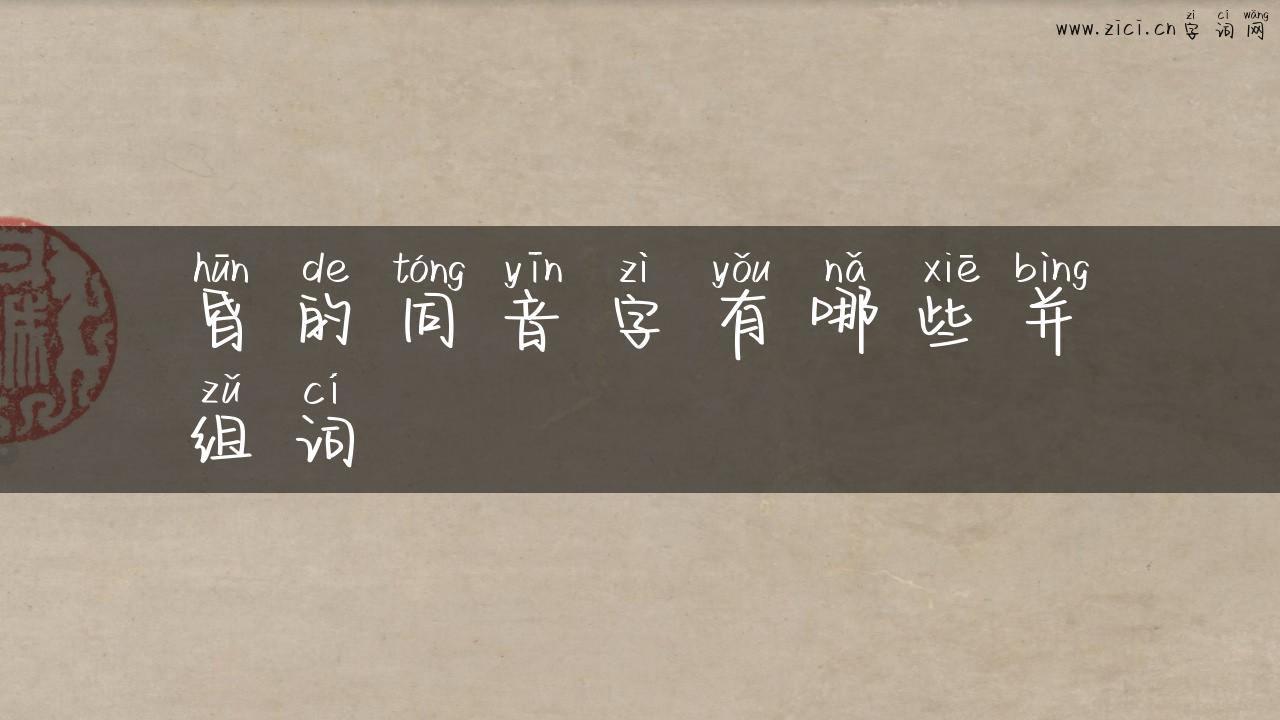 zì cí wǎng
www.zici.cn 字词网
hūn de tóng yīn zì yǒu nǎ xiē bìng
昏的同音字有哪些并
zǔ cí
组词